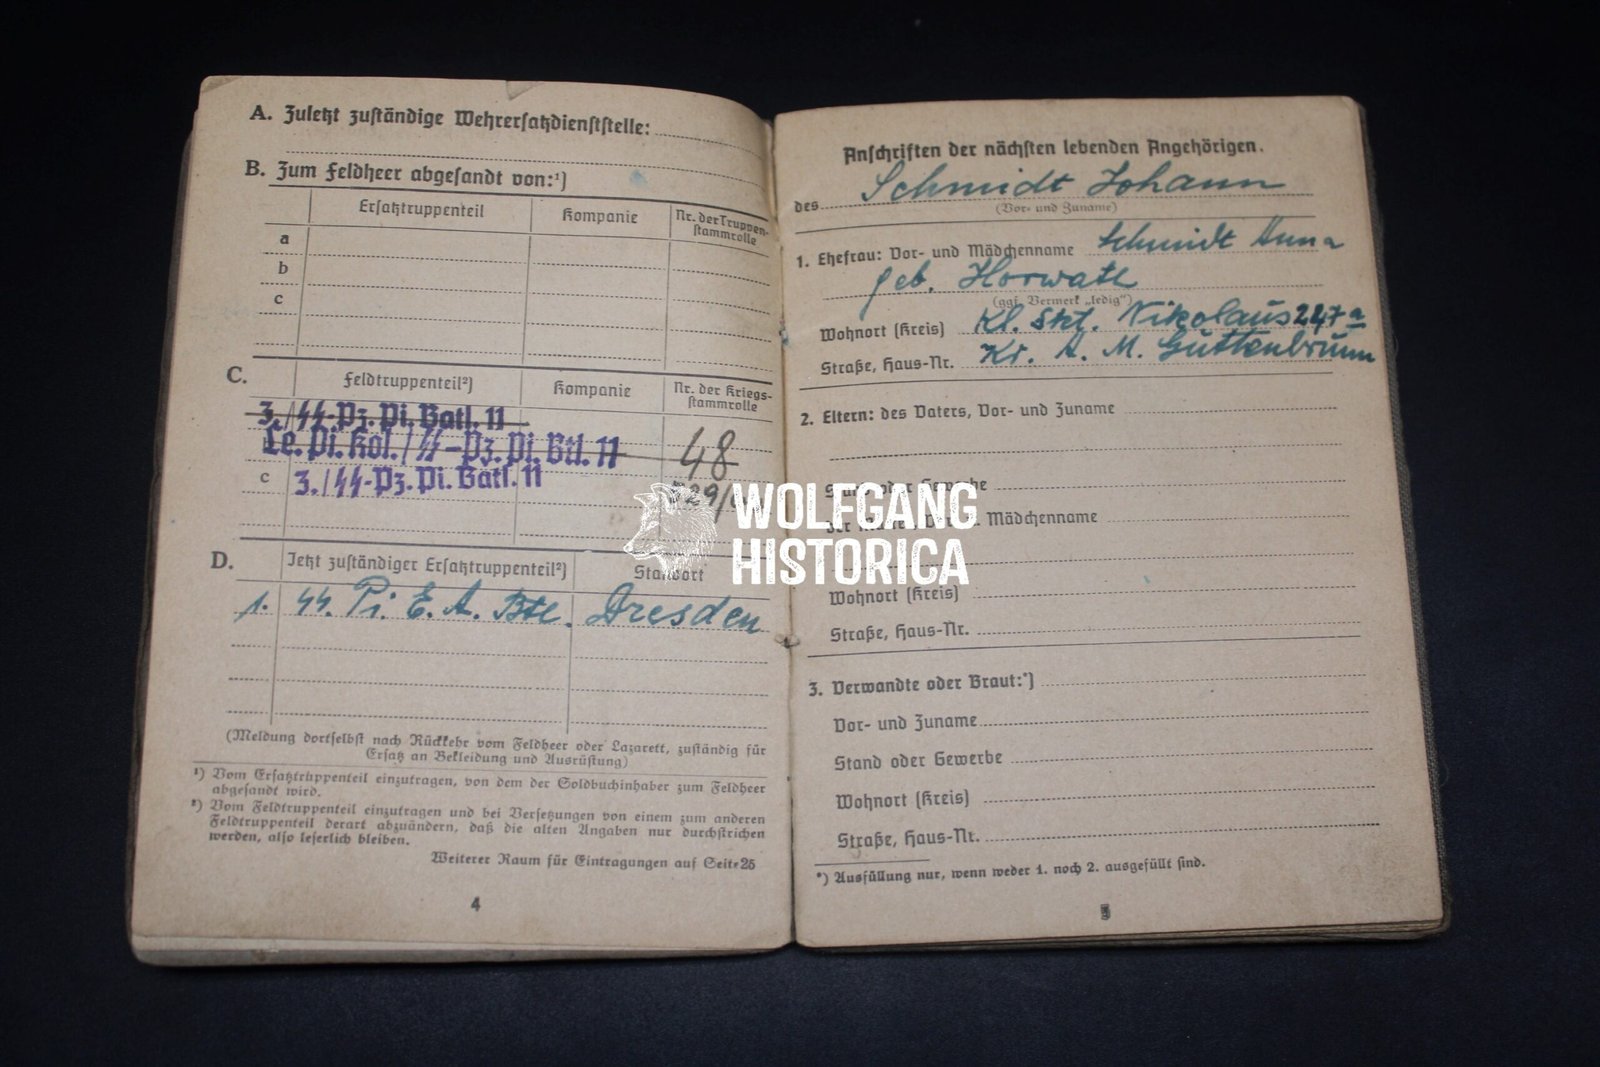 A. Zuletzt zuständige Wehrersatzdienststelle:
B. Zum Feldheer abgesandt von:¹)
Ersatztruppenteil Kompanie Nr. der Truppen-
stammrolle
a
b
c
C. Feldtruppenteil²) Kompanie Nr. der Kriegs-
stammrolle
3./SS-Pz.Pi.Batl.11
Le.Pi.Kol./SS-Pz.Pi.Btl.11 48
c 3./SS-Pz.Pi.Batl.11
D. Jetzt zuständiger Ersatztruppenteil²) Standort
1. SS. Pi. E. A. Btl. Dresden
(Meldung dortselbst nach Rückkehr vom Feldheer oder Lazarett, zuständig für
Ersatz an Bekleidung und Ausrüstung)
¹) Vom Ersatztruppenteil einzutragen, von dem der Soldbuchinhaber zum Feldheer
abgesandt wird.
²) Vom Feldtruppenteil einzutragen und bei Versetzungen von einem zum anderen
Feldtruppenteil derart abzuändern, daß die alten Angaben nur durchstrichen
werden, also leserlich bleiben.
Weiterer Raum für Eintragungen auf Seite 25
4
Anschriften der nächsten lebenden Angehörigen.
des Schmidt Johann
(Vor- und Zuname)
1. Ehefrau: Vor- und Mädchenname Schmidt Anna
geb. Horwath
(ggf. Vermerk „ledig")
Wohnort (Kreis) Kl. Skt. Nikolaus 247a
Straße, Haus-Nr. Kr. A. M. Guttenbrunn
2. Eltern: des Vaters, Vor- und Zuname
Stand oder Gewerbe
der Mutter, Vor- u. Mädchenname
Wohnort (Kreis)
Straße, Haus-Nr.
3. Verwandte oder Braut:*)
Vor- und Zuname
Stand oder Gewerbe
Wohnort (Kreis)
Straße, Haus-Nr.
*) Ausfüllung nur, wenn weder 1. noch 2. ausgefüllt sind.
5
WOLFGANG
HISTORICA